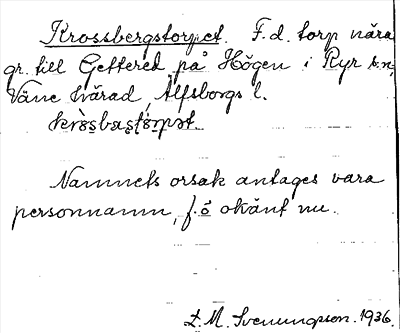 Krossbergstorpet. F.d. torp nära
gr. till Gettered på Högen i Ryr sn,
Väne härad, Älfsborgs l.

Namnets orsak antages vara
personnamn, f. ö okänt nu.
L. M. Svenungsson. 1936.